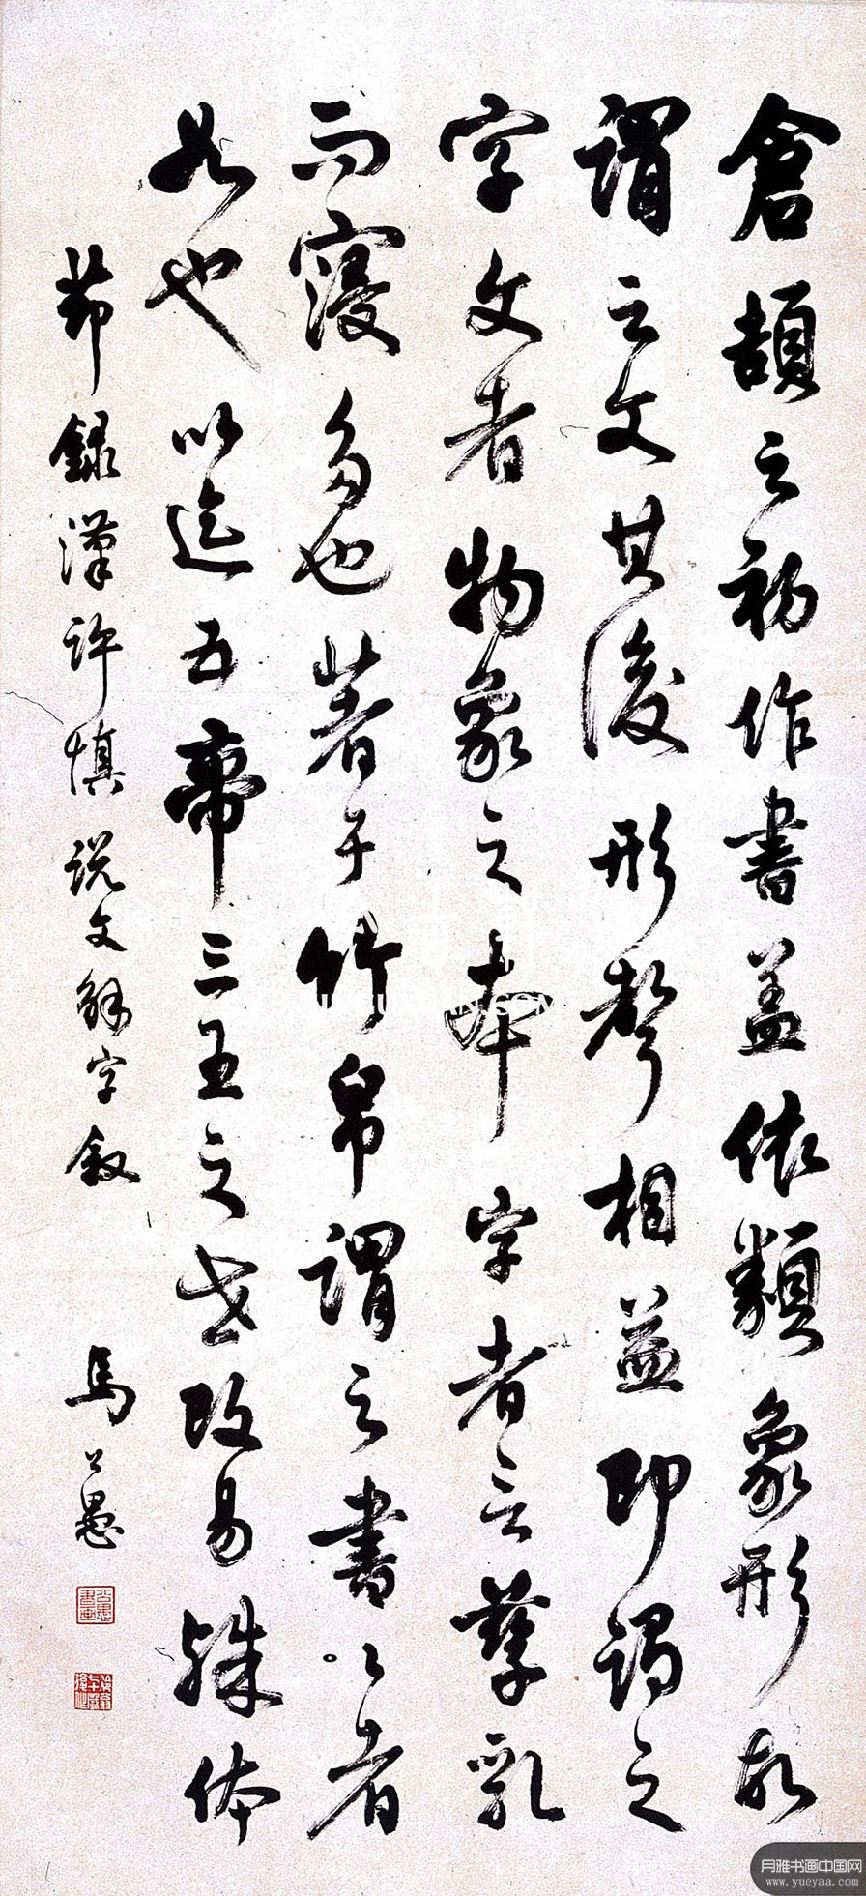 倉頡之初作書盖依類象形故
謂之文其後形聲相益即謂之
字文者物象之本字者言孳乳
而寖多也著于竹帛謂之書〻者
如也以迄五帝三王之世改易殊体
節録漢許慎説文解字敘 馬公愚
公愚書畫
月雅书画中国网
www.yueyaa.com